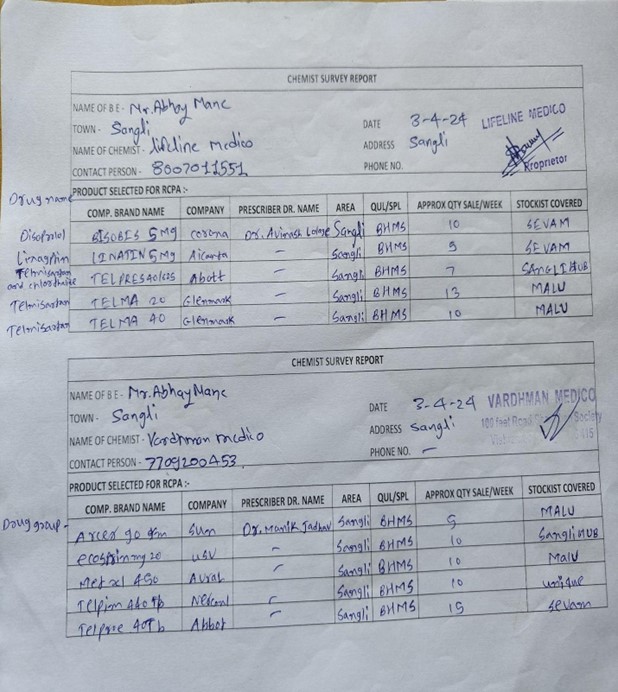 CHEMIST SURVEY REPORT
NAME OF B E - Mr. Abhay Mane
TOWN - Sangli DATE 3-4-24 LIFELINE MEDICO
NAME OF CHEMIST - lifeline medico ADDRESS Sangli
CONTACT PERSON - 8007011551 PHONE NO. Rroprietor
Drug name PRODUCT SELECTED FOR RCPA :-
COMP. BRAND NAME COMPANY PRESCRIBER DR. NAME AREA QUL/SPL APPROX QTY SALE/WEEK STOCKIST COVERED
BISOBIS 5 Mg corona Dr. Avinash Sangli BHMS 10 SEVAM
LINATIN 5 Mg - Sangli BHMS 5 SEVAM
Telmisartan
and TELPRES Abott - Sangli BHMS 7 SANGLI HUB
Telmisartan TELMA 20 Glenmark - Sangli BHMS 13 MALU
Telmisartan TELMA 40 Glenmark - Sangli BHMS 10 MALU
CHEMIST SURVEY REPORT
NAME OF B E - Mr. Abhay Mane
TOWN - Sangli DATE 3-4-24 VARDHMAN MEDICO
NAME OF CHEMIST - Vardhman medico ADDRESS Sangli 100 feet Road Society
CONTACT PERSON - 7709200453 PHONE NO. -
PRODUCT SELECTED FOR RCPA :-
COMP. BRAND NAME COMPANY PRESCRIBER DR. NAME AREA QUL/SPL APPROX QTY SALE/WEEK STOCKIST COVERED
Drug group - Sun Dr. Manik Jadhav Sangli BHMS 5 MALU
USV - Sangli BHMS 10 Sangli HUB
Met xl - Sangli BHMS 10 Malu
- Sangli BHMS 10 unique
Abbot - Sangli BHMS 15 sevam